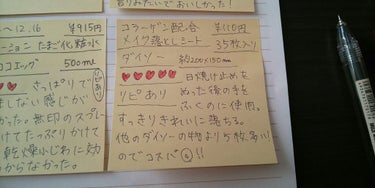 割りみたいでおいしかった！
〜12.16 ¥915円
ーション たまご化粧水
ココエッグ 500ml
リピあり
♥♥♡ さっぱりで
ましない感じが
かった。無印のスプレー
けてたっぷりかけて
乾燥小じわに効
からなかった。
コラーゲン配合 ¥110円
メイク落としシート 35枚入り
ダイソー 約200×150mm
♥♥♥♥♥ 日焼け止めを
リピあり ぬった後の手を
ふくのに使用。
すっきりきれいに落ちる。
他のダイソーの物より5枚多い！
のでコスパ◎!!